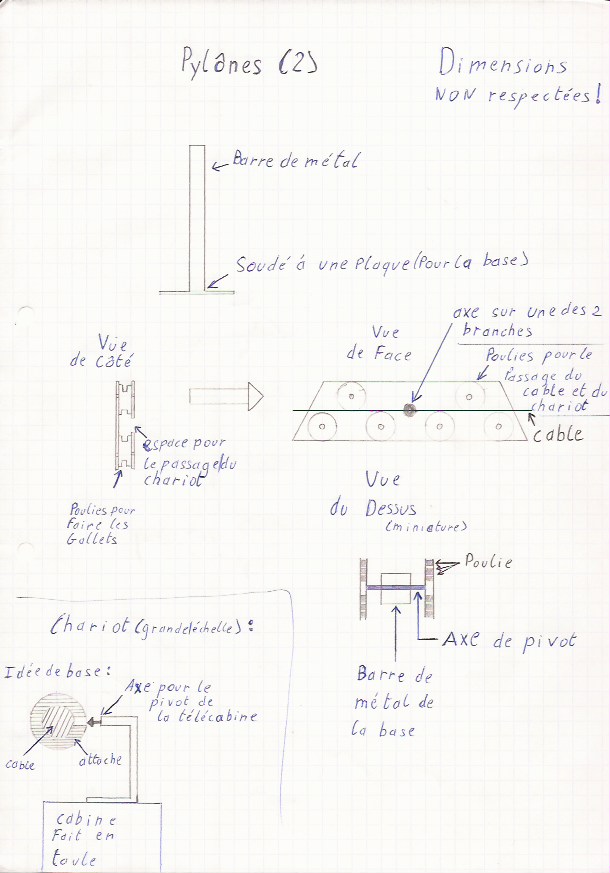 Pylônes (2)
Dimensions
NON respectées!
Barre de métal
Soudé à une plaque (Pour la base)
axe sur une des 2
branches
Vue
de Face
Poulies pour le
Passage du
cable et du
chariot
cable
Vue
de Côté
espace pour
le passage du
chariot
Poulies pour
Faire les
Gallets
Vue
du Dessus
(miniature)
Poulie
Axe de pivot
Barre de
métal de
la base
Chariot (grande échelle) :
Idée de base :
Axe pour le
pivot de
la télécabine
cable
attache
Cabine
Fait en
taule